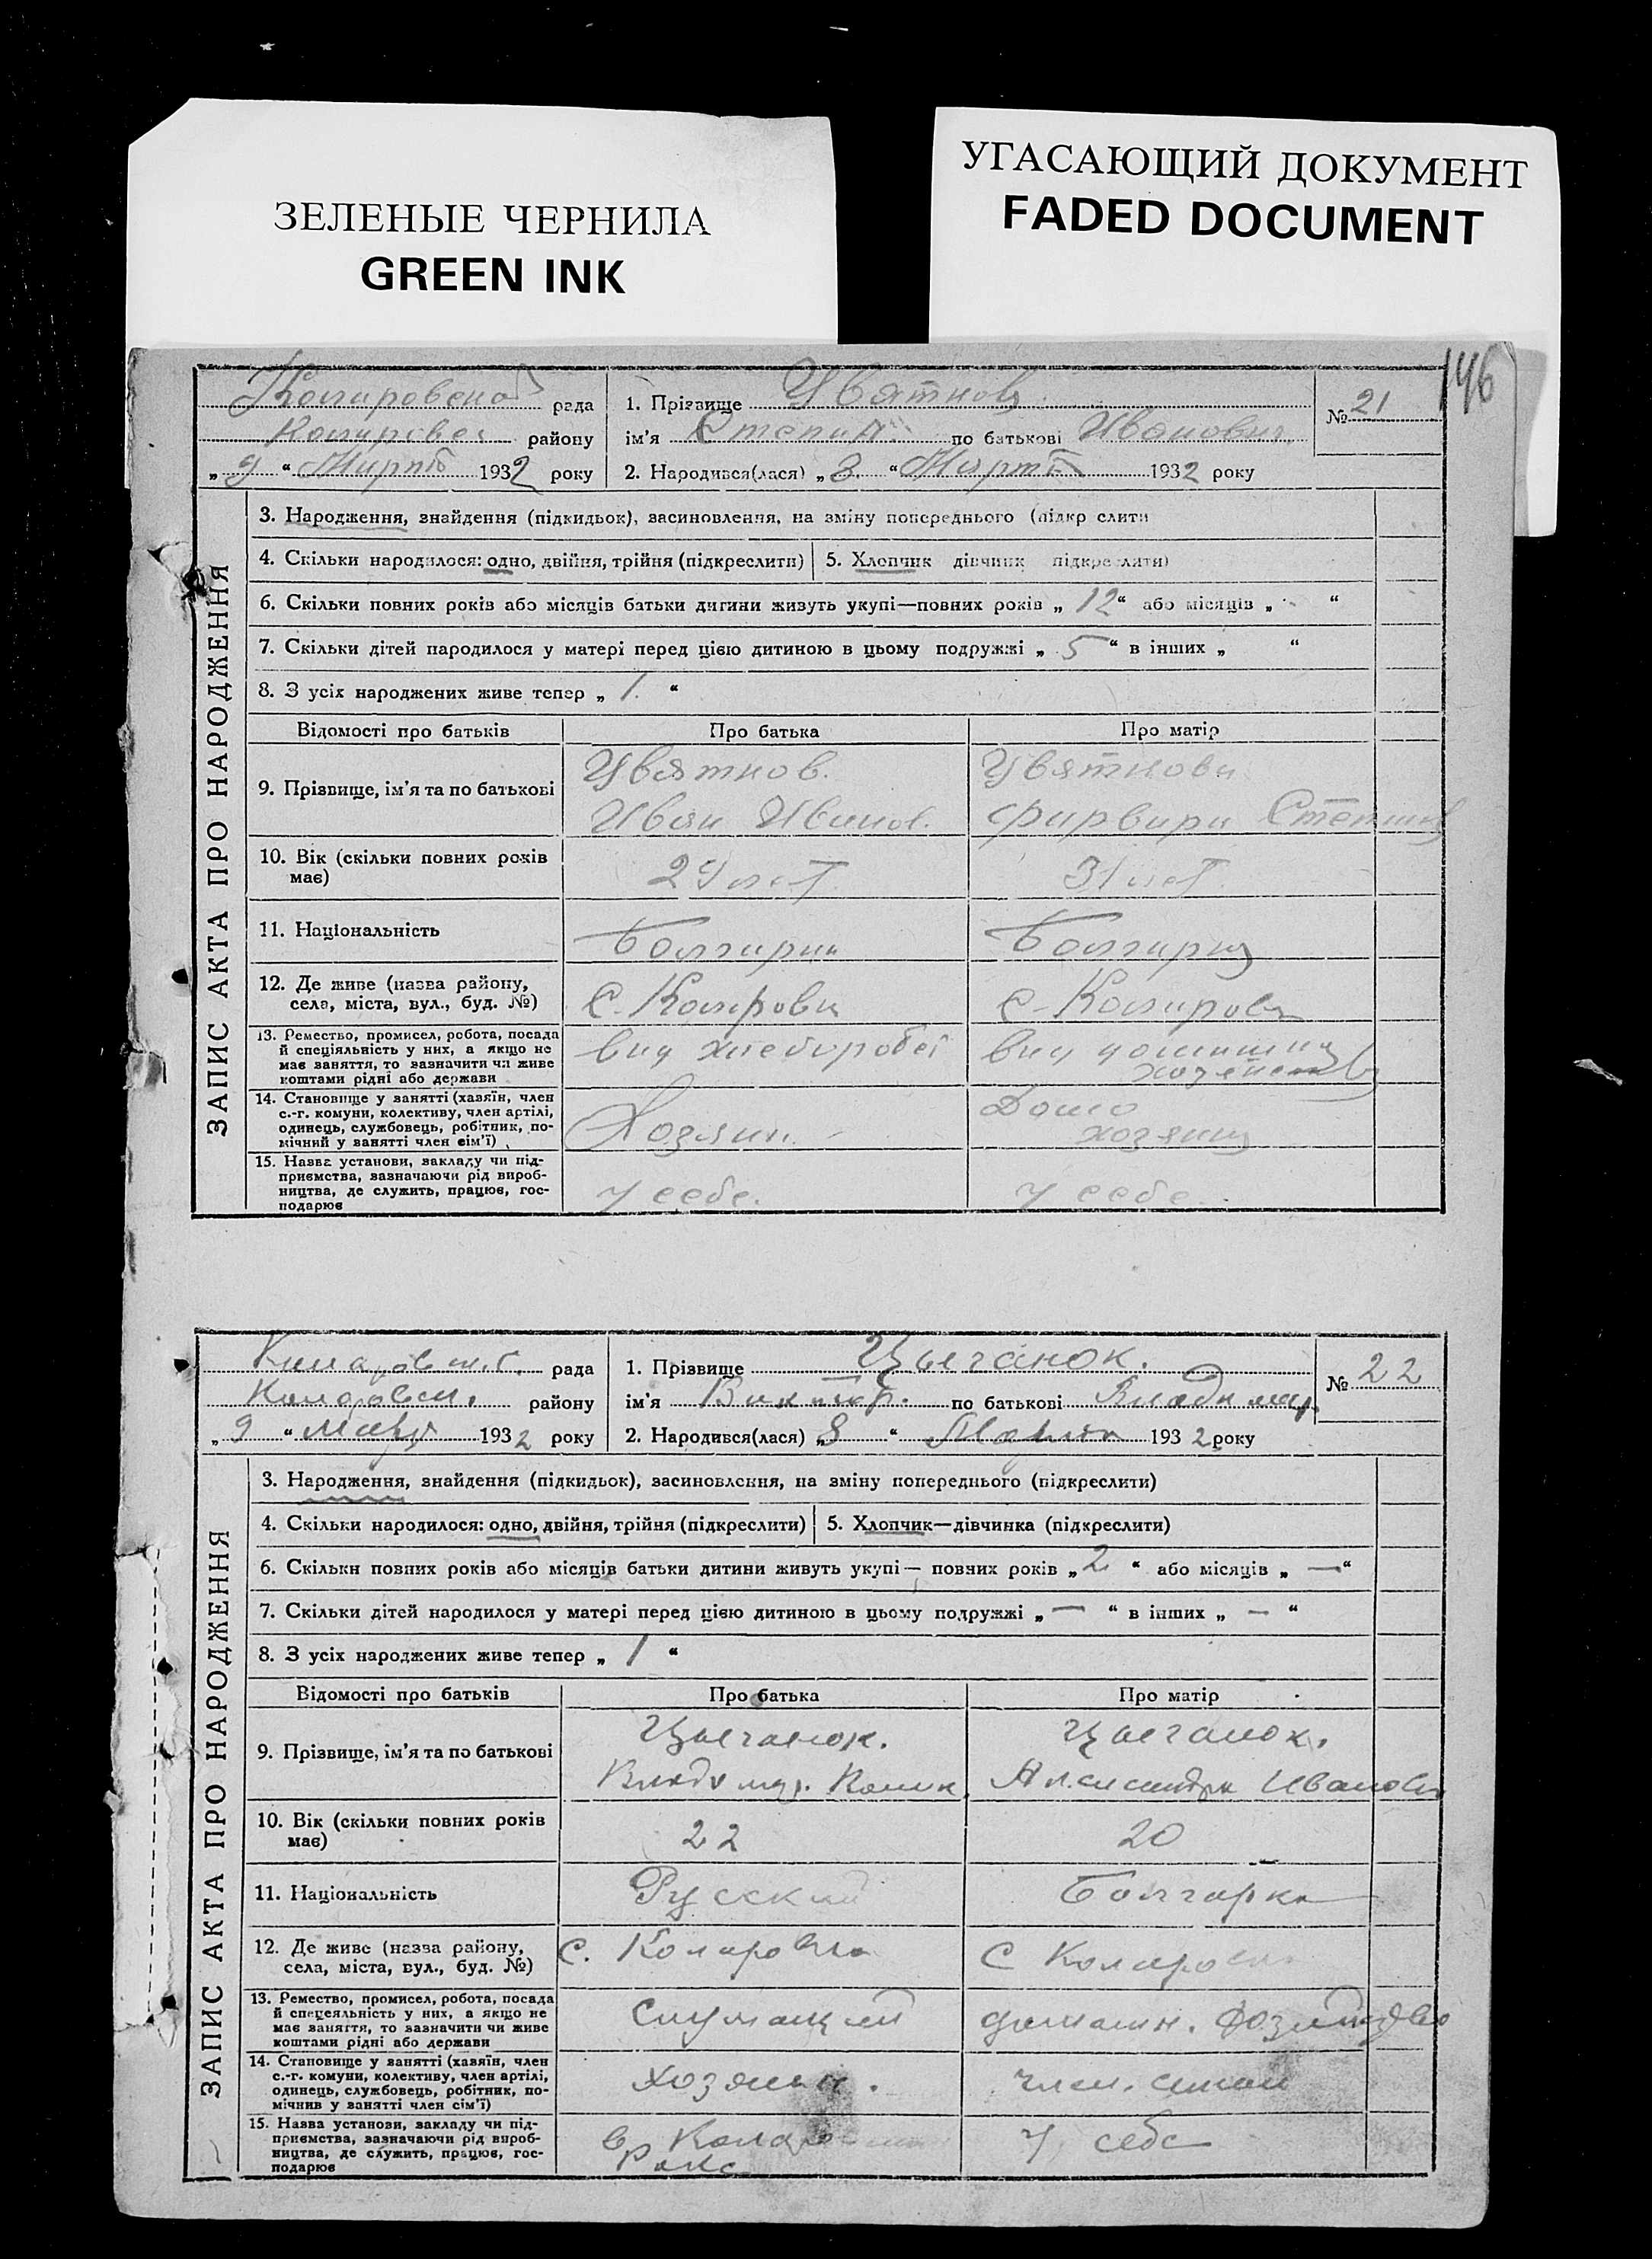 ЗЕЛЕНЫЕ ЧЕРНИЛА
GREEN INK
УГАСАЮЩИЙ ДОКУМЕНТ
FADED DOCUMENT
146
ЗАПИС АКТА ПРО НАРОДЖЕННЯ
рада
району
„ 9 “ 1932 року
1. Прізвище Цвятков
ім'я Степан по батькові Иванович
2. Народився(лася) „ 3 “ Марта 1932 року
№ 21
3. Народження, знайдення (підкидьок), засиновлення, на зміну попереднього (підкр слити
4. Скільки народилося: одно, двійня, трійня (підкреслити) 5. Хлопчик дівчинк підкреслити)
6. Скільки повних років або місяців батьки дитини живуть укупі—повних років „ 12 “ або місяців „ “
7. Скільки дітей народилося у матері перед цією дитиною в цьому подружжі „ 5 “ в інших „ “
8. З усіх народжених живе тепер „ 1. “
Відомості про батьків Про батька Про матір
9. Прізвище, ім'я та по батькові
Цвятков. Цвяткова
Иван Иванов. Фарвара
10. Вік (скільки повних років має)
29 лет. 31 лет.
11. Національність
Болгарин Болгарка
12. Де живе (назва району, села, міста, вул., буд. №)
с. Каларовка с. Каларовка
13. Ремество, промисел, робота, посада
й спеціяльність у них, а якщо не
має заняття, то зазначити чи живе
коштами рідні або держави
14. Становище у занятті (хазяїн, член
с.-г. комуни, колективу, член артілі,
одинець, службовець, робітник, по-
мічний у занятті член сім'ї)
Хозяин Домо
хозяика
15. Назва установи, закладу чи під-
приємства, зазначаючи рід вироб-
ництва, де служить, працює, гос-
подарює
у себе. у себе.
ЗАПИС АКТА ПРО НАРОДЖЕННЯ
рада
району
„ 9 “ Марта 1932 року
1. Прізвище Цыганок.
ім'я Виктор. по батькові Владимир.
2. Народився(лася) „ 8 “ Марта 1932 року
№ 22
3. Народження, знайдення (підкидьок), засиновлення, на зміну попереднього (підкреслити)
4. Скільки народилося: одно, двійня, трійня (підкреслити) 5. Хлопчик—дівчинка (підкреслити)
6. Скільки повних років або місяців батьки дитини живуть укупі— повних років „ 2 “ або місяців „ — “
7. Скільки дітей народилося у матері перед цією дитиною в цьому подружжі „ — “ в інших „ — “
8. З усіх народжених живе тепер „ 1 “
Відомості про батьків Про батька Про матір
9. Прізвище, ім'я та по батькові
Цыганок. Цыганок.
Владимир. Александра Ивановна
10. Вік (скільки повних років має)
22 20
11. Національність
Русский Болгарка
12. Де живе (назва району, села, міста, вул., буд. №)
с. Коларовка с Коларовка
13. Ремество, промисел, робота, посада
й спецеяльність у них, а якщо не
має заняття, то зазначити чи живе
коштами рідні або держави
Служащий домашн.
14. Становище у занятті (хазяїн, член
с.-г. комуни, колективу, член артілі,
одинець, службовець, робітник, по-
мічнив у занятті член сім'ї)
хозяин. член. семьи
15. Назва установи, закладу чи під-
приємства, зазначаючи рід вироб-
ництва, де служить, працює, гос-
подарює
у себе